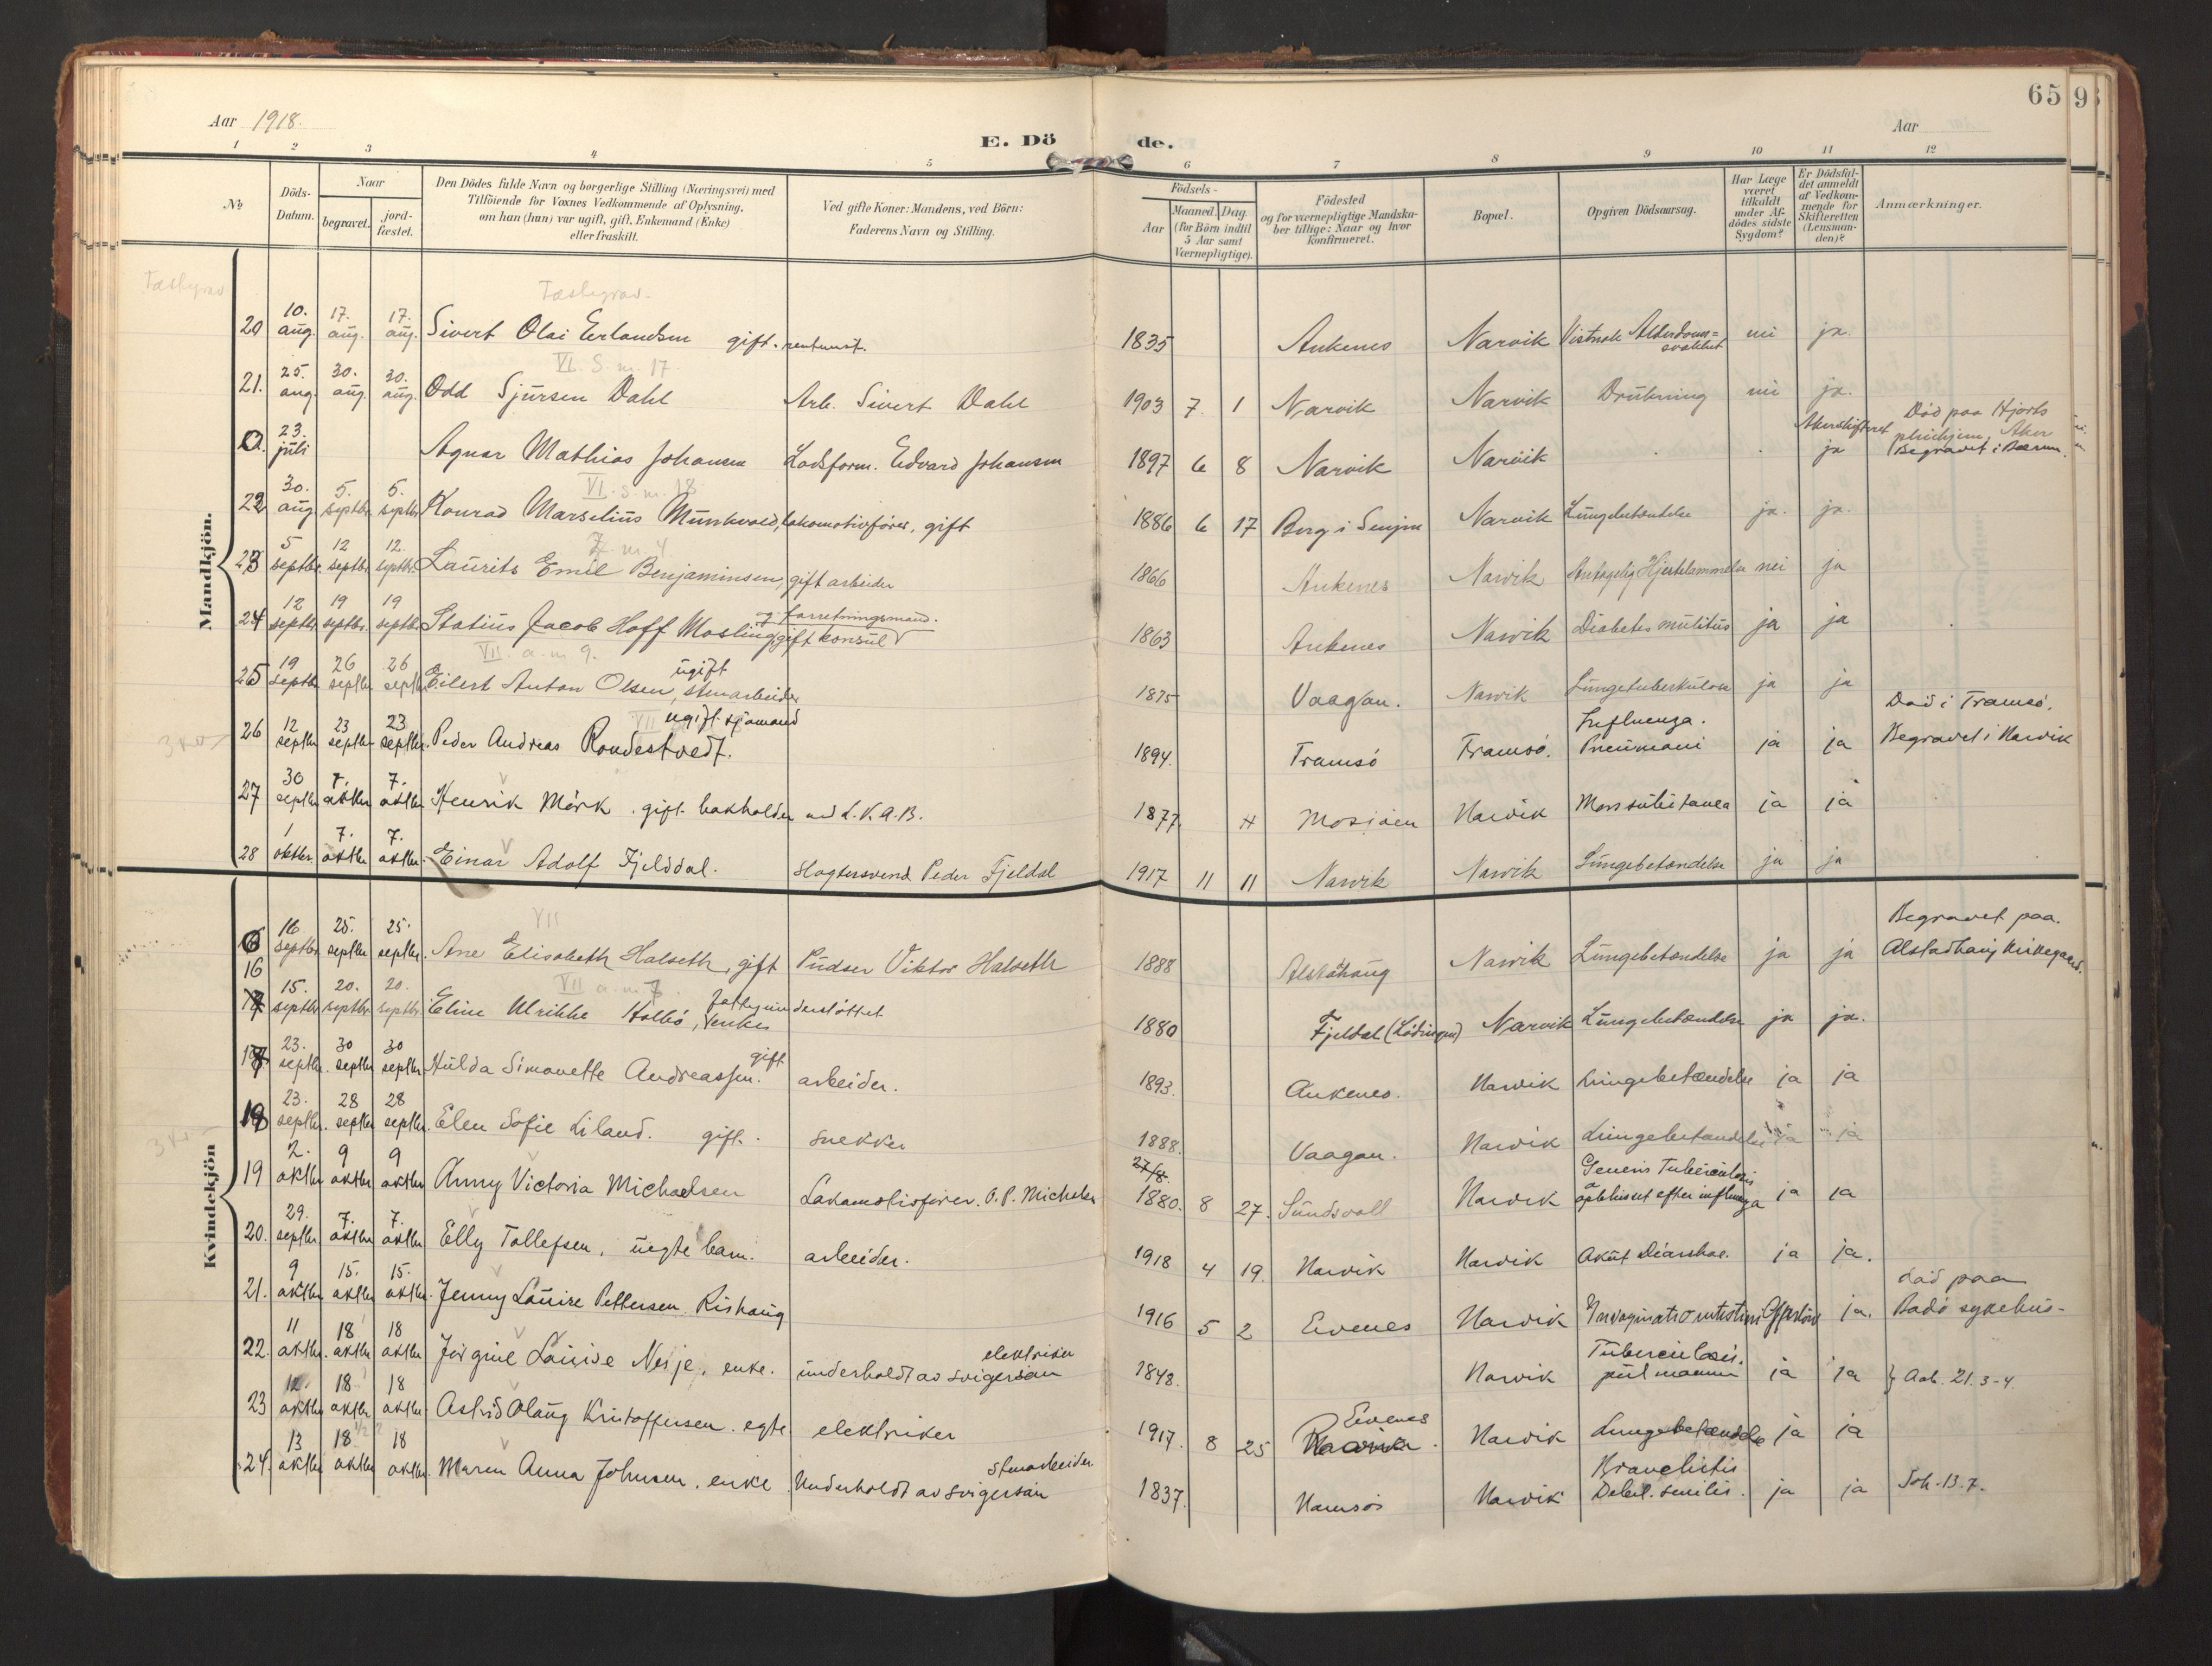 65
9
Aar 1918.
E. Dö de.
Aar
1 2 3 4 5 6 7 8 9 10 11 12
No
Döds-Datum.
Naar
begravet.
jordfæstet.
Den Dödes fulde Navn og borgerlige Stilling (Næringsvei) med
Tilföiende for Voxnes Vedkommende af Oplysning,
om han (hun) var ugift, gift, Enkemand (Enke)
eller fraskilt.
Ved gifte Koner: Mandens, ved Börn:
Faderens Navn og Stilling.
Födsels-
Aar
Maaned. Dag.
(for Börn indtil
5 Aar samt
Værnepligtige).
Födested
og for værnepligtige Mandska-
ber tillige: Naar og hvor
konfirmeret.
Bopæl.
Opgiven Dödsaarsag.
Har Læge
været
tilkaldt
under Af-
dödes sidste
Sygdom?
Er Dödsfal-
det anmeldt
af Vedkom-
mende for
Skifteretten
(Lensman-
den)?
Anmærkninger.
Mandkjön.
20 10. aug. 17. aug. 17. aug. Sivert Olai Erlandsen gift. 1835 Ankenes Narvik Alderdoms= ja.
VI. S. m. 17.
21. 25. aug. 30. aug. 30. aug. Odd Sjursen Dahl Arb. Sivert Dahl 1903 7. 1 Narvik Narvik Drukning ja.
23. juli Agnar Mathias Johansen Lodsform. Edvard Johansen 1897 6 8 Narvik Narvik ja Död paa Hjorts
Aker
Begravet i Bærum.
VI. S. m. 18
22 30. aug 5. septbr. 5. septbr Konrad Marselius Munkvold, lokomotivförer, gift 1886 6 17 Berg i Senjen Narvik Lungebetændelse ja. ja.
m. 4
23 5 septbr. 12 septbr. 12. septbr. Laurits Emil Benjaminsen, gift arbeider 1866 Ankenes Narvik Antagelig Hjertelammelse nei ja
24 12 septbr 19 septbr. 19 septbr. Statius Jacob Hoff Mosling, gift konsul
og forretningsmand. 1863 Ankenes Narvik Diabetes ja ja
VII. a. m 9.
25 19 septbr 26 septbr 26 septbr Eilert Anton Olsen, ugift stenarbeider 1875 Vaagan. Narvik Lungetuberkulose ja ja
26 12 septbr 23 septbr 23 septbr. Peder Andreas Rondestvedt. ugift sjömand 1894. Tromsö Tromsö. Influenza.
Pneumoni ja ja Död i Tromsö.
Begravet i Narvik
27 30 septbr 7. oktbr 7. oktbr Henrik Mörk. gift. bokholder ved L.K.A.B. 1877. Mosjöen Narvik Mors subitanea ja ja
28 1 oktbr. 7. oktbr 7. oktbr. Einar Adolf Fjelddal. Slagtersvend Peder Fjeldal 1917 11 11 Narvik Narvik Lungebetændelse ja ja
Kvindekjön
VII
16 16 septbr. 25. septbr 25. septbr. Ane Elisabeth Halseth, gift Pudser Viktor Halseth 1888 Alstahaug Narvik Lungebetændelse ja ja Begravet paa.
Alstadhaug kirkegaard.
VII a. m 7.
15. septbr 20. septbr. 20. septbr. Eline Ulrikke Holbö, enke fattigunderstöttet 1880 Fjeldal (Lödingen) Narvik Lungebetændelse ja ja.
17 23. septbr. 30 septbr 30 septbr Hulda Simonette Andreassen. gift arbeider. 1893. Ankenes. Narvik Lungebetændelse ja ja
18 23. septbr. 28 septbr. 28 septbr. Elen Sofie Liland. gift. snekker 1888. Vaagan. Narvik Lungebetændelse ja ja
19 2. oktbr 9 oktbr 9 oktbr Anny Victoria Michaelsen Lokomotivförer. O. P. Michelsen 27/8. 1880. 8 27. Sundsvall Narvik Tuberculosis
opblusset efter influenza ja ja
20. 29. septbr. 7. oktbr 7. oktbr Elly Tollefsen, uegte barn. arbeider. 1918 4 19. Narvik Narvik Akut Diarrhoe. ja ja.
21. 9 oktbr 15. oktbr 15. oktbr. Jenny Louise Pettersen. Rishaug 1916 5 2 Evenes Narvik Invaginatio intestini ja. död paa
Bodö sykehus-
22. 11 oktbr. 18 oktbr 18 oktbr Jörgine Louise Nesje. enke. underholdt av svigersön elektriker 1848. Narvik Tuberculosis.
pulmonum ja ja } Aab. 21. 3-4.
23 12. oktbr 18 oktbr 18 oktbr Astrid Olaug Kristoffersen. egte elektriker 1917. 8 25 Evenes Narvik Lungebetændelse ja ja
24. 13 oktbr 18 oktbr 18 oktbr. Maren Anna Johnsen, enke Underholdt av svigersön stenarbeider 1837. Namsos Narvik Bronchitis
Debil. senilis. ja ja Joh. 13. 7.